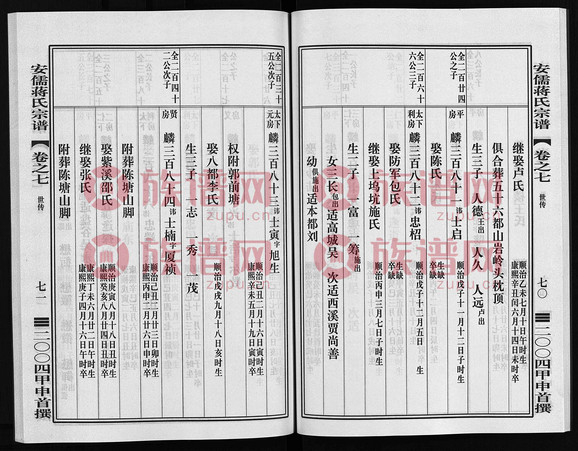 安儒蒋氏宗谱
卷之七
世传
七〇
二〇〇四甲申首撰
继娶卢氏
顺治乙未七月十日午时生
康熙辛丑闰六月八日辰时卒
俱合葬五十六都山岩岭头枕顶
生三子 人德王出 人久 人远卢出
全二百廿四
公之子
平房
麟三百八十一讳士启
顺治戊子十一月十二日子时生
娶陈氏
生缺
卒缺
全二百四十
六公三子
太下
利房
麟三百八十二讳忠梠
顺治戊子十二月五日 生
卒缺
娶防军包氏
生缺
卒缺
继娶上坞坑施氏
顺治丙申三月七日子时生
生二子 一富 一筹施出
女三长包出适高城吴 次适西溪贾尚善
幼俱施出适本都刘
全二百三十
五公次子
太下
元房
麟三百八十三讳士寅字旭生
顺治己丑二月十六日寅时生
康熙辛未五月十九日寅时卒
权附郭前塘
娶八都李氏
顺治戊戌九月十八日亥时生
生三子 一志 一秀 一茂
全二百四十
二公次子
贤房
麟三百八十四讳士楠字夏祯
顺治己丑三月廿三日卯时生
康熙丙申三月廿六日申时卒
附葬陈塘山脚
娶紫溪邵氏
顺治庚寅八月十八日丑时生
康熙癸亥八月廿四日丑时卒
继娶张氏
康熙丁未六月廿二日午时生
康熙庚子四月十六日午时卒
附葬陈塘山脚
安儒蒋氏宗谱
卷之七
世传
七一
二〇〇四甲申首撰
族谱网
zupu.cn
族谱网
zupu.cn